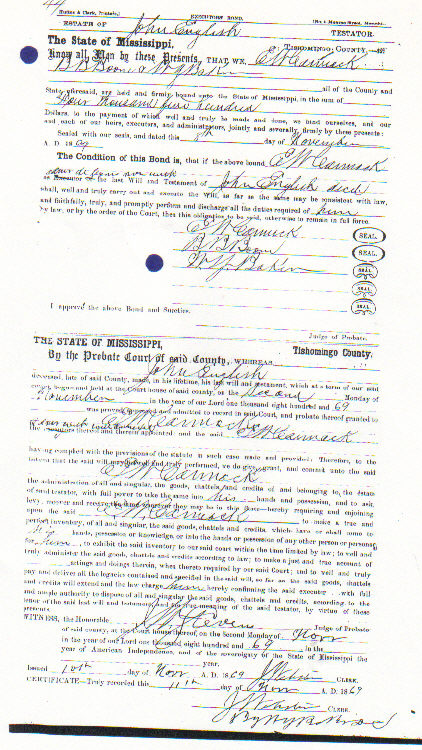 44
EXECUTORS BOND.
ESTATE OF John English TESTATOR.
The State of Mississippi, TISHOMINGO COUNTY
Know all Men by these Presents, THAT WE, C W Carmack
B B Boon & W J Bakin all of the County and
State aforesaid, are held and firmly bound unto the State of Mississippi, in the sum of
Four thousand five hundred
Dollars, to the payment of which well and truly be made and done, we bind ourselves, and our
and each of our heirs, executors, and administrators, jointly and severally, firmly by these presents:
Sealed with our seals, and dated this 8th day of November
A. D. 1869
The Condition of this Bond is, that if the above bound, C W Carmack
as Executor of the last Will and Testament of John English decd
shall, well and truly carry out and execute the Will, as far as the same may be consistent with law,
and faithfully, truly, and promptly perform and discharge all the duties required of him
by law, or by the order of the Court, then this obligation to be void, otherwise to remain in full force.
C W Carmack SEAL.
B B Boon SEAL.
W J Bakin SEAL.
SEAL.
SEAL.
I approve the above Bond and Sureties.
Judge of Probate.
THE STATE OF MISSISSIPPI, Tishomingo County.
By the Probate Court of said County, WHEREAS,
John English
deceased, late of said County, made, in his lifetime, his last will and testament, which at a term of our said
court, begun and held at the Court house of said county, on the Second Monday of
November in the year of our Lord one thousand eight hundred and 69
was proved and admitted to record in said Court, and probate thereof granted to
C W Carmack
the executors thereof and therein appointed and the said C W Carmack
having complied with the provisions of the statute in such case made and provided: Therefore, to the
intent that the said will may be well and truly performed, we do give, grant, and commit unto the said
C W Carmack
the administration of all and singular, the goods, chattels and credits of and belonging to the estate
of said testator, with full power to take the same into his hands and possession, and to ask,
levy, recover and receive the same wherever they may be in this State—hereby requiring and enjoining
upon the said C W Carmack to make a true and
perfect inventory, of all and singular, the said goods, chattels and credits, which have or shall come to
his hands, possession or knowledge, or into the hands or possession of any other person or persons
for him, to exhibit the said inventory to our said court within the time limited by law; to well and
truly administer the said goods, chattels and credits according to law; to make a just and true account of
actings and doings therein, when thereto required by our said Court; and to well and truly
pay and deliver all the legacies contained and specified in the said will, so far as the said goods, chattels
and credits will extend and the law charge him hereby confirming the said executor with full
and ample authority to dispose of all and singular the said goods, chattels and credits, according to the
tenor of the said last will and testament, and the true meaning of the said testator, by virtue of these
presents.
WITNESS, the Honorable Judge of Probate
of said county, at the Court house thereof, on the Second Monday of Nov
in the year of our Lord one thousand eight hundred and 69
year of American Independence, and of the sovereignty of the State of Mississippi the
year.
Issued 10th day of Nov A. D. 1869 CLERK.
CERTIFICATE—Truly recorded this 11th day of Nov A. D. 1869
CLERK.